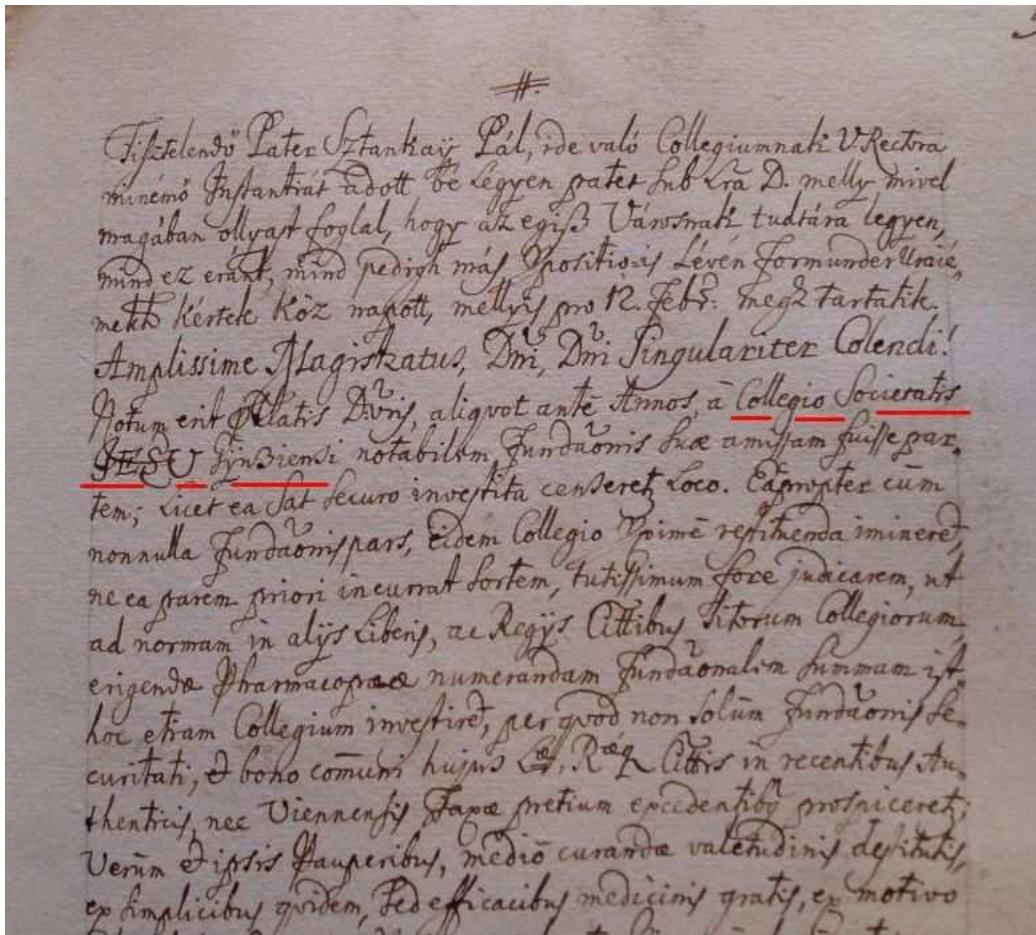 #.
Tisztelendő Pater Sztankaÿ Pál, ide való Collegiumnak V Rectora
minémő Instantiát adott bé légyen patet sub Lrã D. melly mivel
magában ollyast foglal, hogy az egisß Városnak tudtára legyen,
mind ez eránt, mind pedigh más is Lévén Formunder
kértek köz napott, mellyis pro 12. Febr: megh tartatik.
Amplissime Magistratus, Dni, Dni Singulariter Colendi!
Notum erit Dvris, aliqvot ante Annos, â Collegio Societatis
JESU notabilem Fundãonis suæ amissam fuisse par-
tem; Licet ea sat securo investita censeret Loco. Eapropter cùm
nonnulla Fundãonis pars, eidem Collegio restituenda imineret,
ne ea parem priori incurrat sortem, tutissimum fore judicarem, ut
ad normam in alÿs Liberis, ac Regÿs Cittibus Sitorum Collegiorum,
erigendæ Pharmacopææ numerandam Fundãonalem summam ist-
hoc etiam Collegium investiret, per qvod non solùm Fundãonis se-
curitati, & bono comũni hujus Cittis in recentibus Au-
thenticis, nec Viennensis Taxæ pretium excedentibg prospiceret;
Verùm & ipsis Pauperibus, mediô curandæ valetudinis destitutis,
ex simplicibus qvidem, sed efficacibus medicinis gratis, ex motivo